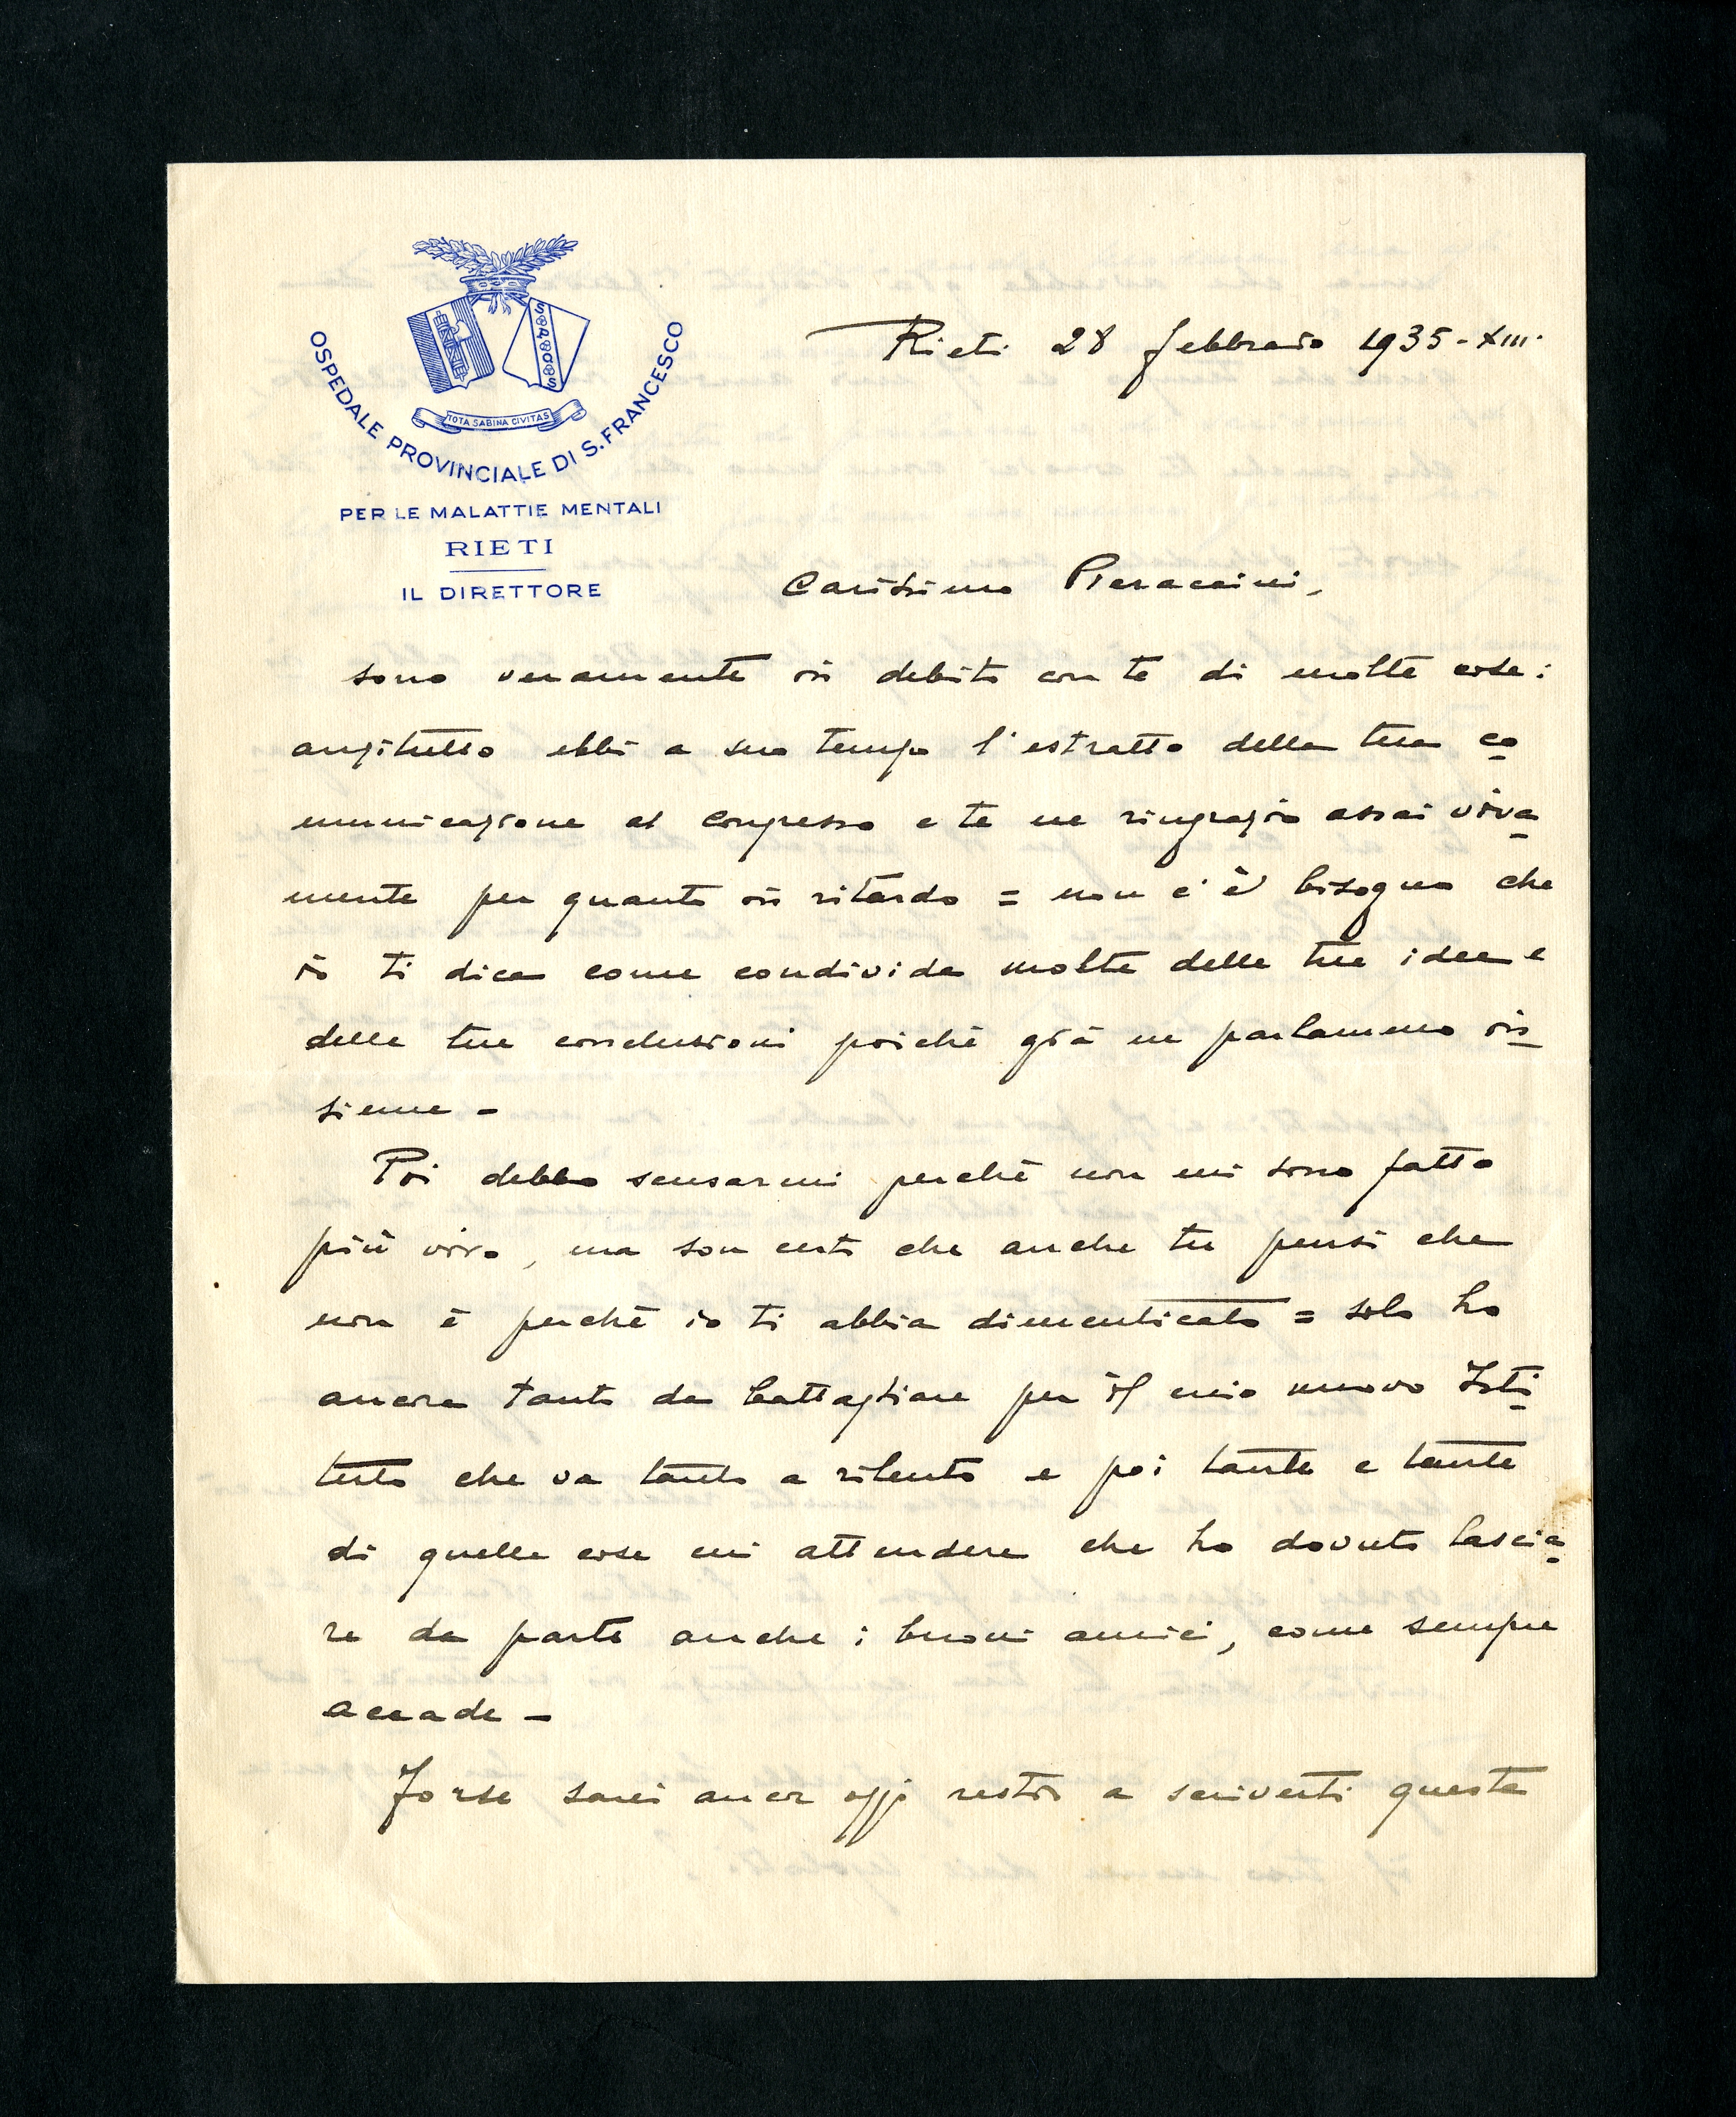 S P Q S
TOTA SABINA CIVITAS
OSPEDALE PROVINCIALE DI S. FRANCESCO
PER LE MALATTIE MENTALI
RIETI
IL DIRETTORE
Rieti 28 febbraio 1935-XIII.
Carissimo Pieraccini,
sono veramente in debito con te di molte cose:
anzitutto ebbi a suo tempo l'estratto della tua co
municazione al Congresso e te ne ringrazio assai viva
mente per quanto in ritardo = non c'è bisogno che
io ti dica come condivida molte delle tue idee e
delle tue conclusioni poichè già ne parlammo in
sieme -
Poi debbo scusarmi perchè non mi sono fatto
più vivo, ma son certo che anche tu pensi che
non è perchè io ti abbia dimenticato = solo ho
ancora tanto da battagliare per il mio nuovo Isti
tuto che va tanto a rilento e poi tante e tante
di quelle cose mi attendere che ho dovuto lascia
re da parte anche i buoni amici, come sempre
accade -
Forse sarei ancor oggi restio a scriverti questa